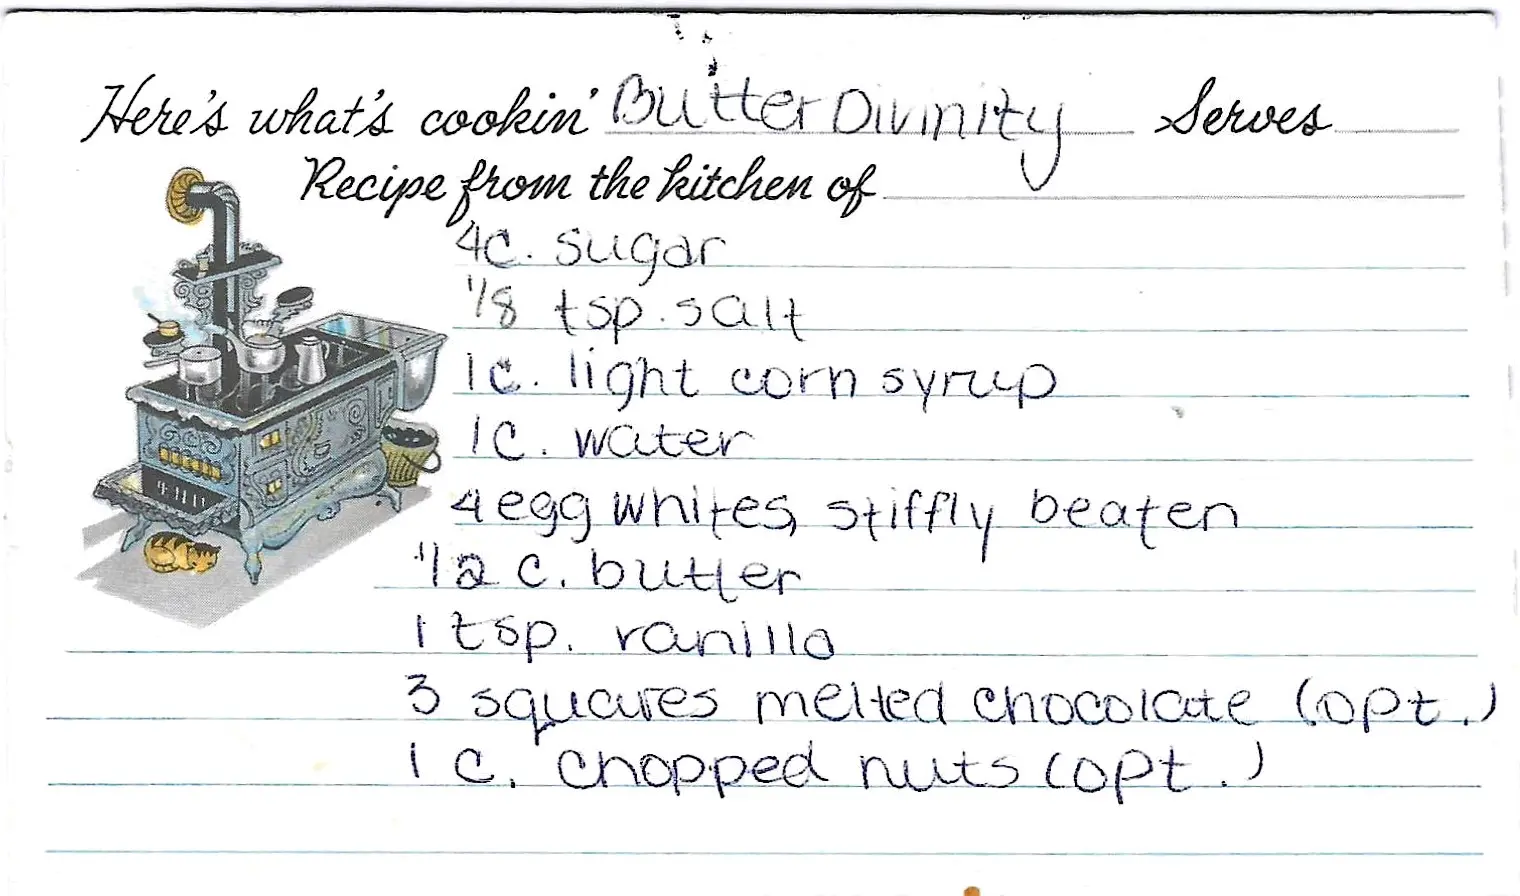 Here's what's cookin' Butter Divinity Serves
Recipe from the kitchen of
4c. sugar
1/8 tsp. salt
1c. light corn syrup
1c. water
4 egg whites, stiffly beaten
1/2 c. butter
1 tsp. vanilla
3 squares melted chocolate (opt.)
1 c. chopped nuts (opt.)